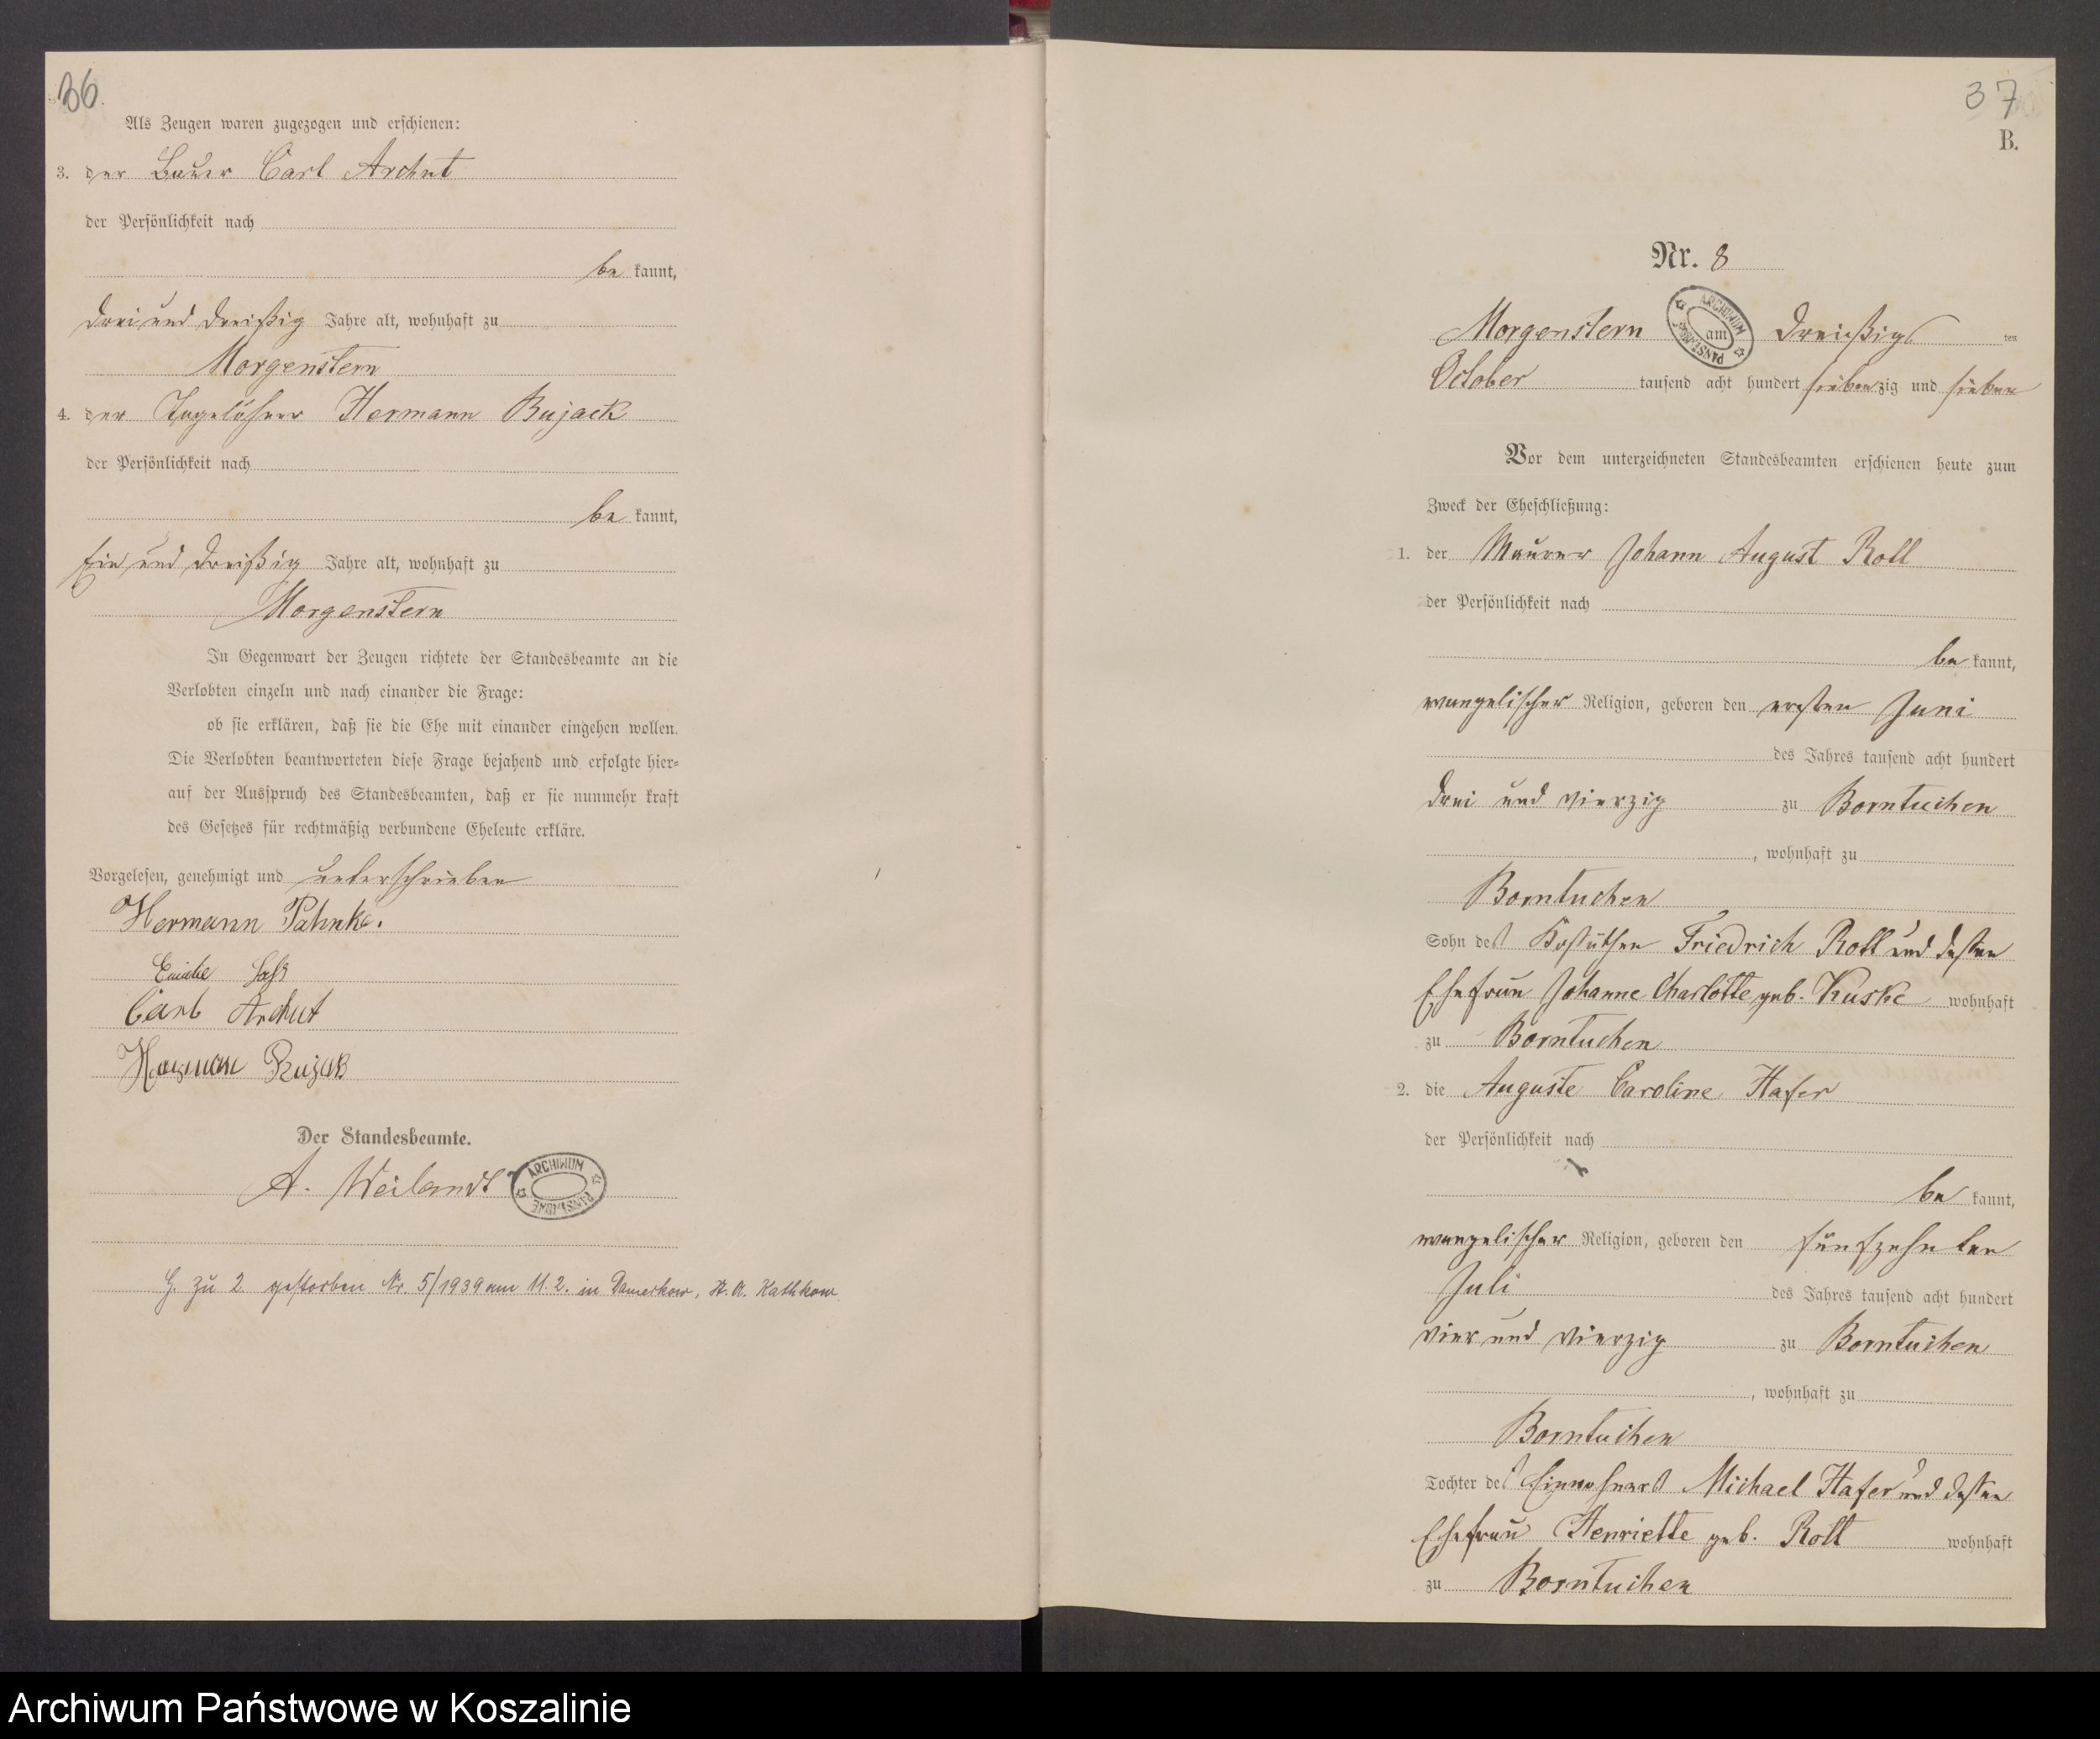 36.
Als Zeugen waren zugezogen und erschienen:
3. der Bauer Carl Archut
der Persönlichkeit nach
be kannt,
drei und dreißig Jahre alt, wohnhaft zu
Morgenstern
4. der Tagelöhner Hermann Bujack
der Persönlichkeit nach
be kannt,
Ein und dreißig Jahre alt, wohnhaft zu
Morgenstern
In Gegenwart der Zeugen richtete der Standesbeamte an die
Verlobten einzeln und nach einander die Frage:
ob sie erklären, daß sie die Ehe mit einander eingehen wollen.
Die Verlobten beantworteten diese Frage bejahend und erfolgte hier-
auf der Ausspruch des Standesbeamten, daß er sie nunmehr kraft
des Gesetzes für rechtmäßig verbundene Eheleute erkläre.
Vorgelesen, genehmigt und unterschrieben
Hermann Pahnke.
Emilie
Carl Archut
Herman Bujak
Der Standesbeamte.
A. Weilandt
ARCHIWUM PAŃSTWOWE
H. zu 2 gestorben Nr. 5/1939 am 11.2. in Damerkow, St. A. Kathkow
37
B.
Nr. 8
Morgenstern am dreißigsten
ARCHIWUM PAŃSTWOWE
October tausend acht hundert siebenzig und sieben
Vor dem unterzeichneten Standesbeamten erschienen heute zum
Zweck der Eheschließung:
1. der Maurer Johann August Roll
der Persönlichkeit nach
be kannt,
evangelischer Religion, geboren den ersten Juni
des Jahres tausend acht hundert
drei und vierzig zu Borntuchen
, wohnhaft zu
Borntuchen
Sohn des Friedrich Roll und dessen
Ehefrau Johanne Charlotte geb. Kuske wohnhaft
zu Borntuchen
2. die Auguste Caroline Hafer
der Persönlichkeit nach
be kannt,
evangelischer Religion, geboren den fünfzehnten
Juli des Jahres tausend acht hundert
vier und vierzig zu Borntuchen
, wohnhaft zu
Borntuchen
Tochter des Einwohners Michael Hafer und dessen
Ehefrau Henriette geb. Roll wohnhaft
zu Borntuchen
Archiwum Państwowe w Koszalinie